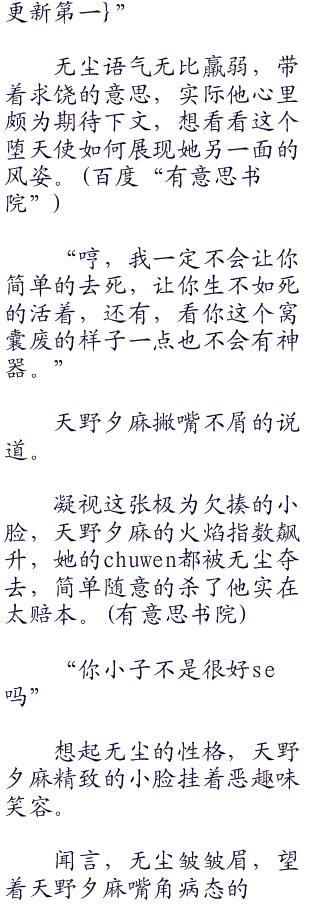 更新第一}”
无尘语气无比羸弱，带
着求饶的意思，实际他心里
颇为期待下文，想看看这个
堕天使如何展现她另一面的
风姿。(百度“有意思书
院”)
“哼，我一定不会让你
简单的去死，让你生不如死
的活着，还有，看你这个窝
囊废的样子一点也不会有神
器。”
天野夕麻撇嘴不屑的说
道。
凝视这张极为欠揍的小
脸，天野夕麻的火焰指数飙
升，她的chuwen都被无尘夺
去，简单随意的杀了他实在
太赔本。(有意思书院)
“你小子不是很好se
吗”
想起无尘的性格，天野
夕麻精致的小脸挂着恶趣味
笑容。
闻言，无尘皱皱眉，望
着天野夕麻嘴角病态的